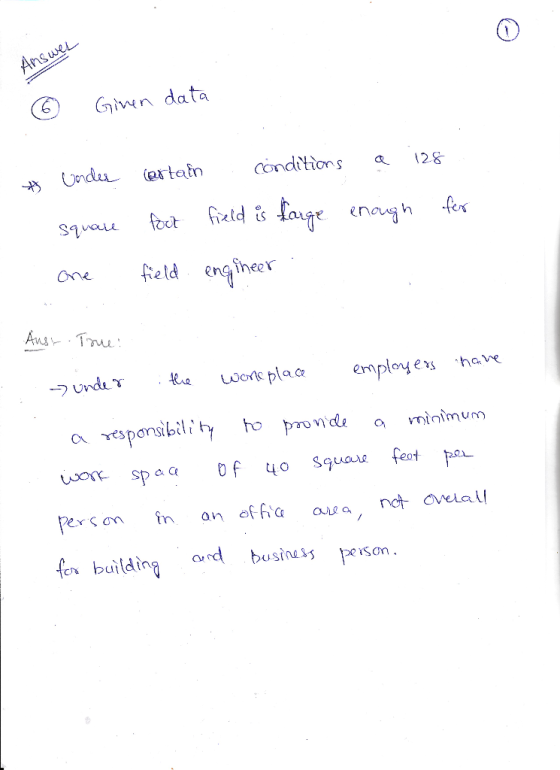 ①
Answer
⑥ Given data
* Under certain conditions a 128
square foot field is large enough for
one field engineer
Ans:- True:
→ under the workplace employers have
a responsibility to provide a minimum
work space of 40 square feet per
person in an office area, not overall
for building and business person.